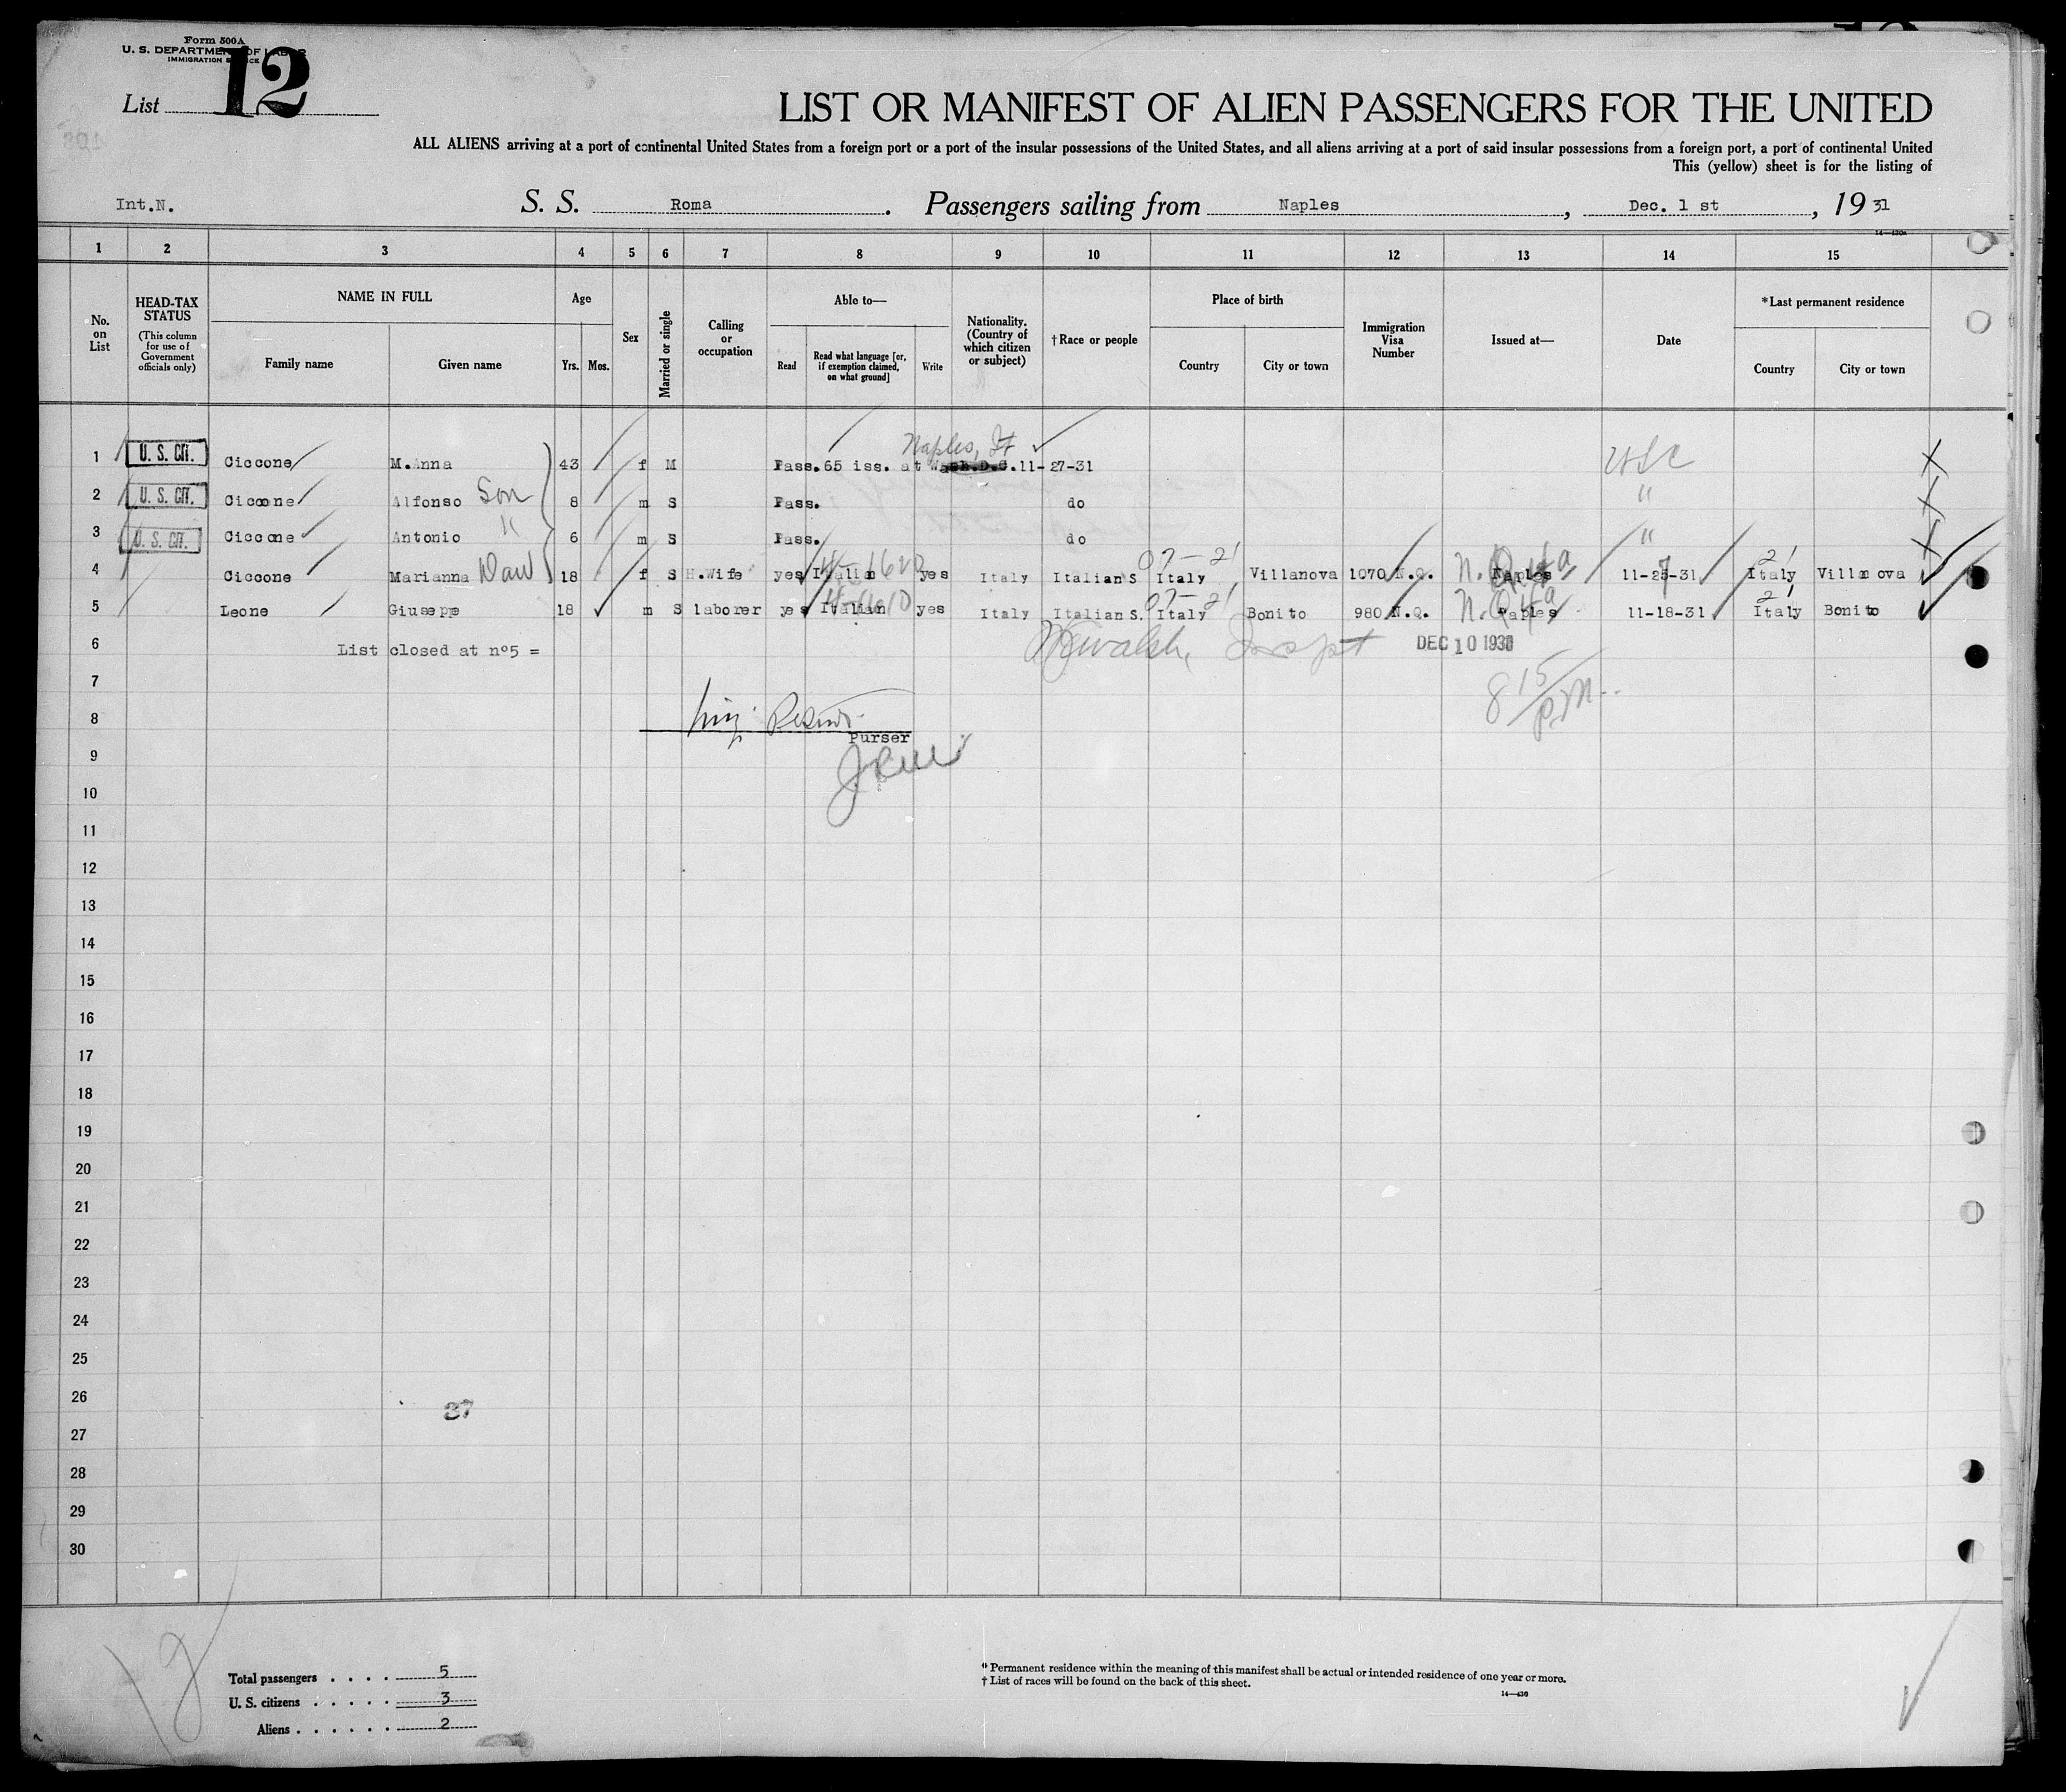 Form 500A
U. S. DEPARTMENT OF LABOR
IMMIGRATION SERVICE
List 12
LIST OR MANIFEST OF ALIEN PASSENGERS FOR THE UNITED
ALL ALIENS arriving at a port of continental United States from a foreign port or a port of the insular possessions of the United States, and all aliens arriving at a port of said insular possessions from a foreign port, a port of continental United
This (yellow) sheet is for the listing of
Int.N. S. S. Roma. Passengers sailing from Naples, Dec. 1 st, 19 31
14—430a
1 2 3 4 5 6 7 8 9 10 11 12 13 14 15
No. on List
HEAD-TAX STATUS (This column for use of Government officials only)
NAME IN FULL
Family name Given name
Age
Yrs. Mos.
Sex
Married or single
Calling or occupation
Able to—
Read Read what language [or, if exemption claimed, on what ground] Write
Nationality. (Country of which citizen or subject)
†Race or people
Place of birth
Country City or town
Immigration Visa Number
Issued at—
Date
*Last permanent residence
Country City or town
Naples, It
1 U. S. CIT. Ciccone M.Anna 43 f M Pass.65 iss. at Wash.D.C.11-27-31 USC
2 U. S. CIT. Ciccone Alfonso Son 8 m S Pass. do "
3 U. S. CIT. Ciccone Antonio " 6 m S Pass. do "
4 Ciccone Marianna Daw 18 f S H.Wife yes Italian yes Italy Italian S Italy Villanova 1070 N.Q. Naples 11-27-31 Italy Villanova
5 Leone Giusepp 18 m S laborer yes Italian yes Italy Italian S. Italy Bonito 980 N.Q. Naples 11-18-31 Italy Bonito
6 List closed at nº5 = Walsh, Inspt DEC 10 1931
7 8 15/PM
8
Purser
9
10
11
12
13
14
15
16
17
18
19
20
21
22
23
24
25
26
37
27
28
29
30
Total passengers . . . . 5
U. S. citizens . . . . . 3
Aliens . . . . . . 2
* Permanent residence within the meaning of this manifest shall be actual or intended residence of one year or more.
† List of races will be found on the back of this sheet.
14—430